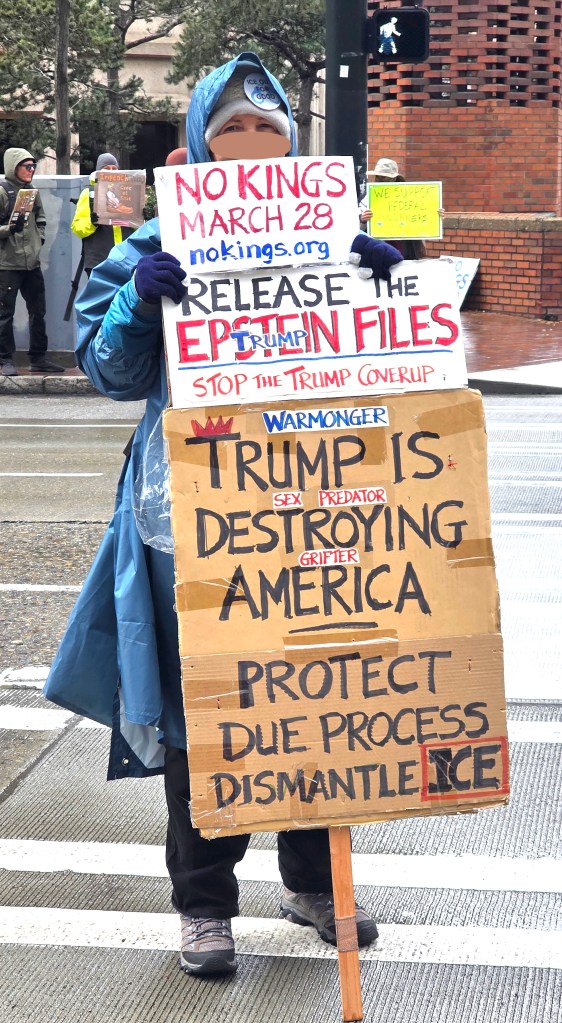 ICE OUT
FOR
GOOD
IMPEACH
WE SUPPORT
FEDERAL
WORKERS
NO KINGS
MARCH 28
nokings.org
RELEASE THE
EPSTEIN FILES
TRUMP
STOP THE TRUMP COVERUP
WARMONGER
TRUMP IS
SEX PREDATOR
DESTROYING
GRIFTER
AMERICA
PROTECT
DUE PROCESS
DISMANTLE ICE